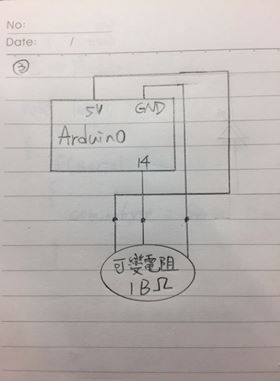 No:
Date: /
③
5V GND
Arduino
14
可變電阻
1BΩ